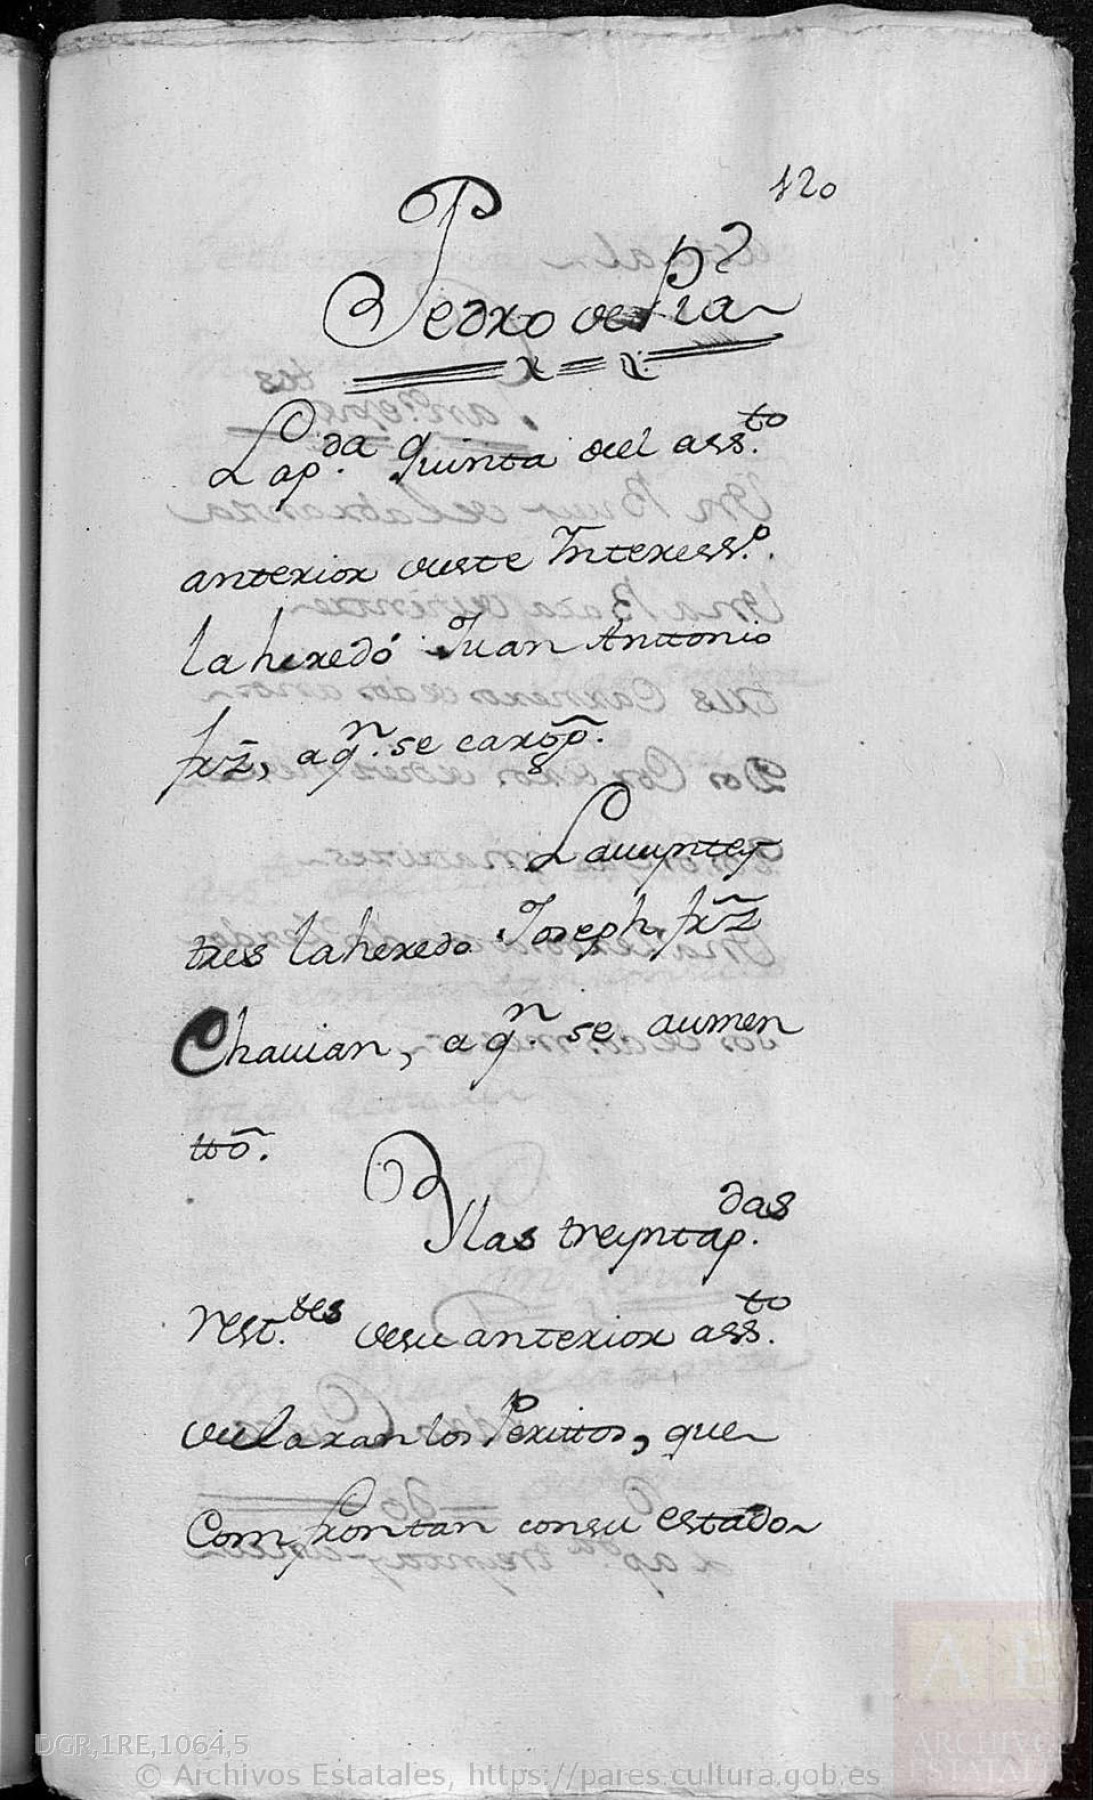 120
Pedro de Pra
La p.da quinta del ass.to
anterior deste Interess.o.
la heredó Juan Anttonio
frz, a q.n se cargo.
La veynte y
tres la heredo Joseph frz
Chavian, a q.n se aumen
tto.
Y las treynta p.das
rest.tes de su anterior ass.to
declaran los Peritos, que
Comfrontan con su estado
DGR,1RE,1064,5
© Archivos Estatales, https://pares.cultura.gob.es
AE
ARCHIVOS
ESTATALES